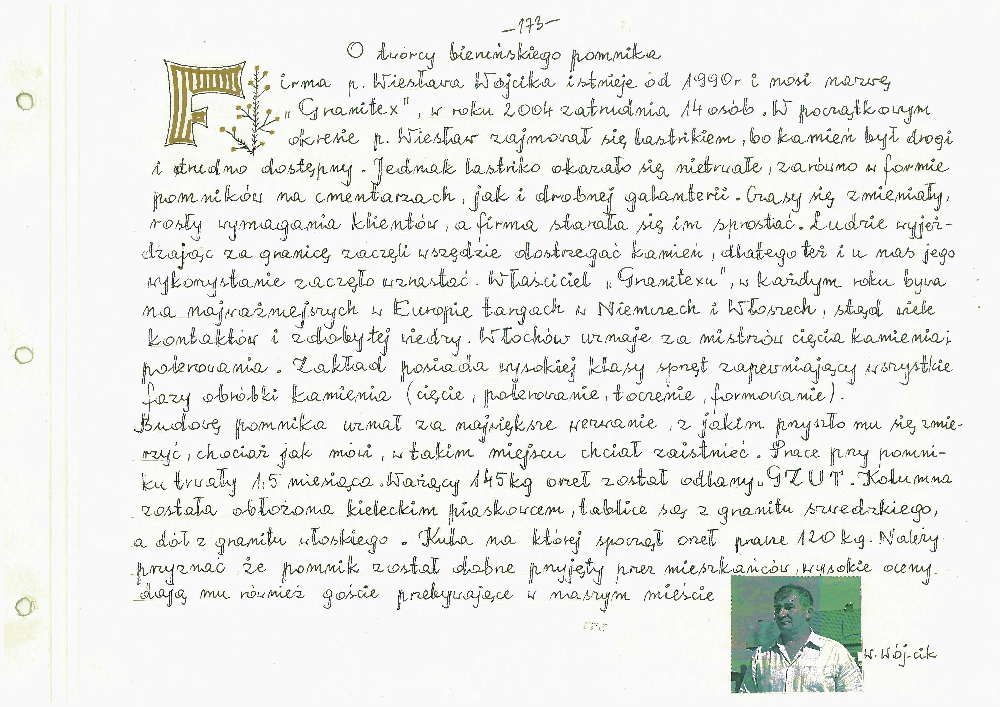 -173-
O twórcy bieruńskiego pomnika
Firma p. Wiesława Wójcika istnieje od 1990r i nosi nazwę
„Granitex", w roku 2004 zatrudnia 14 osób. W początkowym
okresie p. Wiesław zajmował się lastrikiem, bo kamień był drogi
i trudno dostępny. Jednak lastriko okazało się nietrwałe, zarówno w formie
pomników na cmentarzach, jak i drobnej galanterii. Czasy się zmieniały,
rosły wymagania klientów, a firma starała się im sprostać. Ludzie wyjeż-
dżając za granicę zaczęli wszędzie dostrzegać kamień, dlatego też i u nas jego
wykorzystanie zaczęło wzrastać. Właściciel „Granitexu", w każdym roku bywa
na najważniejszych w Europie targach w Niemczech i Włoszech, stąd wiele
kontaktów i zdobytej wiedzy. Włochów uznaje za mistrzów cięcia kamienia i
polerowania. Zakład posiada wysokiej klasy sprzęt zapewniający wszystkie
fazy obróbki kamienia (cięcie, polerowanie, toczenie, formowanie).
Budowę pomnika uznał za największe wezwanie, z jakim przyszło mu się zmie-
rzyć, chociaż jak mówi, w takim miejscu chciał zaistnieć. Prace przy pomni-
ku trwały 1,5 miesiąca. Ważący 145kg orzeł został odlany w GZUT. Kolumna
została obłożona kieleckim piaskowcem, tablice są z granitu szwedzkiego,
a dół z granitu włoskiego. Kula na której spoczął orzeł prawie 120 kg. Należy
przyznać że pomnik został dobrze przyjęty przez mieszkańców, wysokie oceny
dają mu również goście przebywające w naszym mieście
W. Wójcik